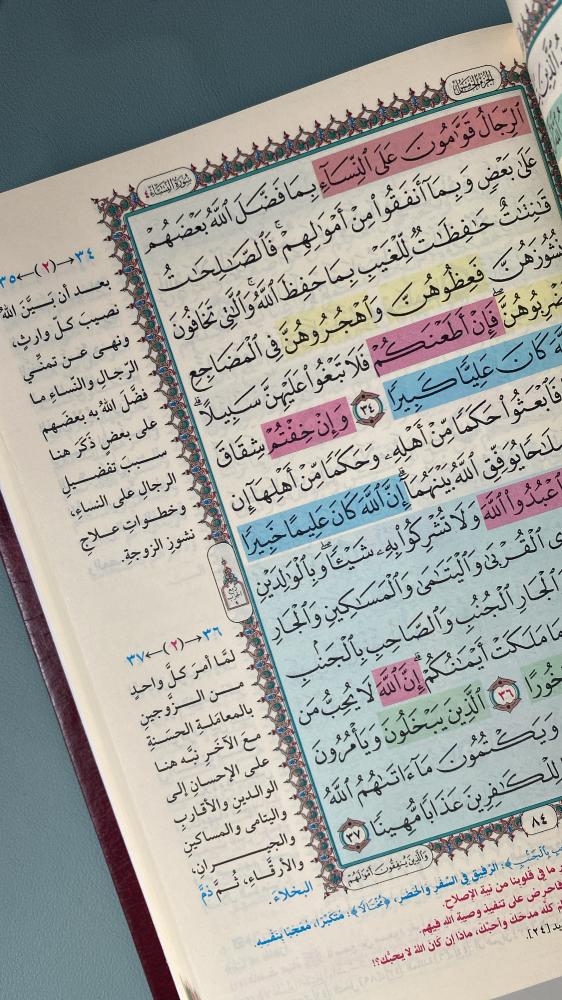 الجزء الخامس
سورة النساء ٤
ٱلرِّجَالُ قَوَّٰمُونَ عَلَى ٱلنِّسَآءِ بِمَا فَضَّلَ ٱللَّهُ بَعْضَهُمْ
عَلَىٰ بَعْضٍ وَبِمَآ أَنفَقُوا۟ مِنْ أَمْوَٰلِهِمْ ۚ فَٱلصَّـٰلِحَـٰتُ
قَـٰنِتَـٰتٌ حَـٰفِظَـٰتٌ لِّلْغَيْبِ بِمَا حَفِظَ ٱللَّهُ ۚ وَٱلَّـٰتِى تَخَافُونَ
نُشُوزَهُنَّ فَعِظُوهُنَّ وَٱهْجُرُوهُنَّ فِى ٱلْمَضَاجِعِ
ضْرِبُوهُنَّ ۖ فَإِنْ أَطَعْنَكُمْ فَلَا تَبْغُوا۟ عَلَيْهِنَّ سَبِيلًا ۗ
كَانَ عَلِيًّا كَبِيرًا ٣٤ وَإِنْ خِفْتُمْ شِقَاقَ
فَٱبْعَثُوا۟ حَكَمًا مِّنْ أَهْلِهِۦ وَحَكَمًا مِّنْ أَهْلِهَآ إِن
يُوَفِّقِ ٱللَّهُ بَيْنَهُمَآ ۗ إِنَّ ٱللَّهَ كَانَ عَلِيمًا خَبِيرًا
ٱعْبُدُوا۟ ٱللَّهَ وَلَا تُشْرِكُوا۟ بِهِۦ شَيْـًٔا ۖ وَبِٱلْوَٰلِدَيْنِ
ٱلْقُرْبَىٰ وَٱلْيَتَـٰمَىٰ وَٱلْمَسَـٰكِينِ وَٱلْجَارِ
ٱلْجَارِ ٱلْجُنُبِ وَٱلصَّاحِبِ بِٱلْجَنۢبِ
مَا مَلَكَتْ أَيْمَـٰنُكُمْ ۗ إِنَّ ٱللَّهَ لَا يُحِبُّ مَن
خُورًا ٣٦ ٱلَّذِينَ يَبْخَلُونَ وَيَأْمُرُونَ
وَيَكْتُمُونَ مَآ ءَاتَىٰهُمُ ٱللَّهُ
لِلْكَـٰفِرِينَ عَذَابًا مُّهِينًا ٣٧
٨٤
وَٱلَّذِينَ يُنفِقُونَ أَمْوَٰلَهُمْ
٣٤→(٢)←٣٥
بعد أن بيَّنَ اللهُ
نصيبَ كلِّ وارثٍ،
ونهى عن تمنِّي
الرِّجالِ والنِّساءِ ما
فضَّلَ اللهُ به بعضَهم
على بعضٍ ذَكَرَ هنا
سببَ تفضيلِ
الرجالِ على النساءِ،
وخطواتِ علاجِ
نشوزِ الزوجةِ.
٣٦→(٢)←٣٧
لمَّا أمرَ كلَّ واحدٍ
من الزَّوجينِ
بالمعاملةِ الحسنةِ
معَ الآخَرِ نبَّه هنا
على الإحسانِ إلى
الوالدينِ والأقاربِ
واليتامى والمساكينِ
والجيرانِ،
والأرقَّاءِ، ثُمَّ ذمَّ
البخلاءَ.
بِٱلْجَنۢبِ: الرفيقِ في السَّفرِ والحَضَرِ، مُتكبِّرًا، مُعجبًا بنَفْسِه.
ما في قلوبنا من نية الإصلاح.
فاحرص على تنفيذ وصية الله فيهم.
كله مدحك وأحبك، ماذا إن كان الله لا يحبك؟!
[٢٤]